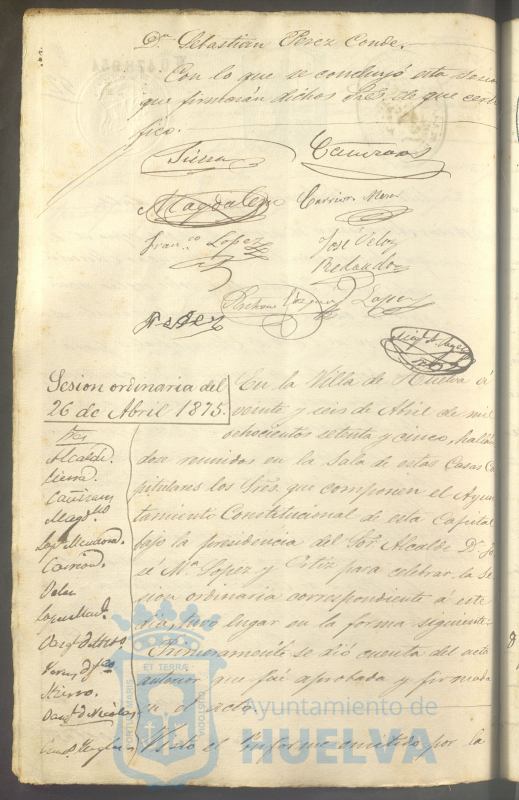 Dn Sebastian Perez Conde.
Con lo que se concluyó esta sesion
que firmarán dichos Sres. de que certi
fico.
Sierra
Magdaleno Carrion
Franco Lopez José Velez
Redondo
Lopez
Sesion ordinaria del
26 de Abril 1875.
En la Villa de Huelva á
veinte y seis de Abril de mil
ochocientos setenta y cinco, hallan
dose reunidos en la Sala de estas Casas Ca
pitulares los Sres. que componen el Ayun
tamiento Constitucional de esta Capital
bajo la presidencia del Sor. Alcalde Dn Jo
sé Ma. Lopez y Ortiz para celebrar la Se
sion ordinaria correspondiente á este
dia, tuvo lugar en la forma siguiente:
Primeramente se dió cuenta del acta
anterior que fué aprobada y firmada
en el acto.
Visto el informe emitido por la
Sres
Alcalde.
Sierra.
Magdno
Lop. Mendoza.
Carrion.
Velez
ET TERRAE
Ayuntamiento de
HUELVA